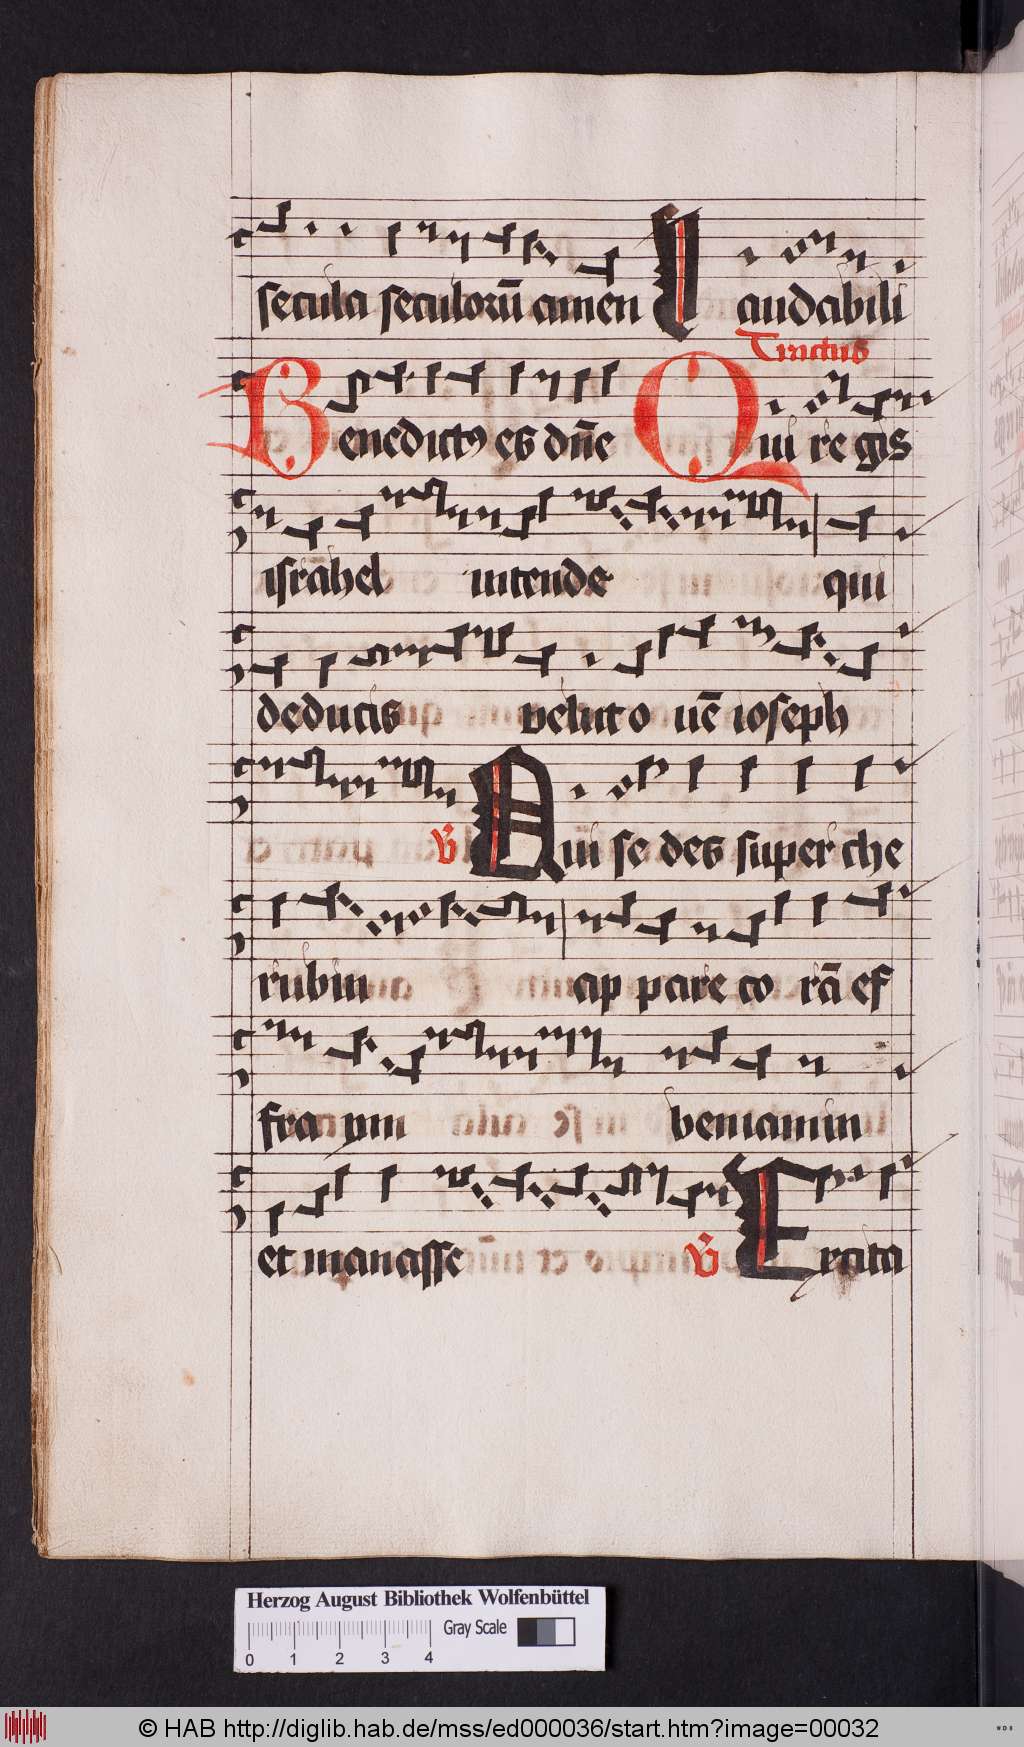 secula seculorū amen Laudabili
Tractus
Benedictꝰ es dn̄e Qui re gis
israhel intende qui
deducis velut o uē ioseph
V Qui se des super che
rubin ap pare co rā ef
fra ym beniamin
et manasse V Excita
Herzog August Bibliothek Wolfenbüttel
Gray Scale
0 1 2 3 4
© HAB http://diglib.hab.de/mss/ed000036/start.htm?image=00032